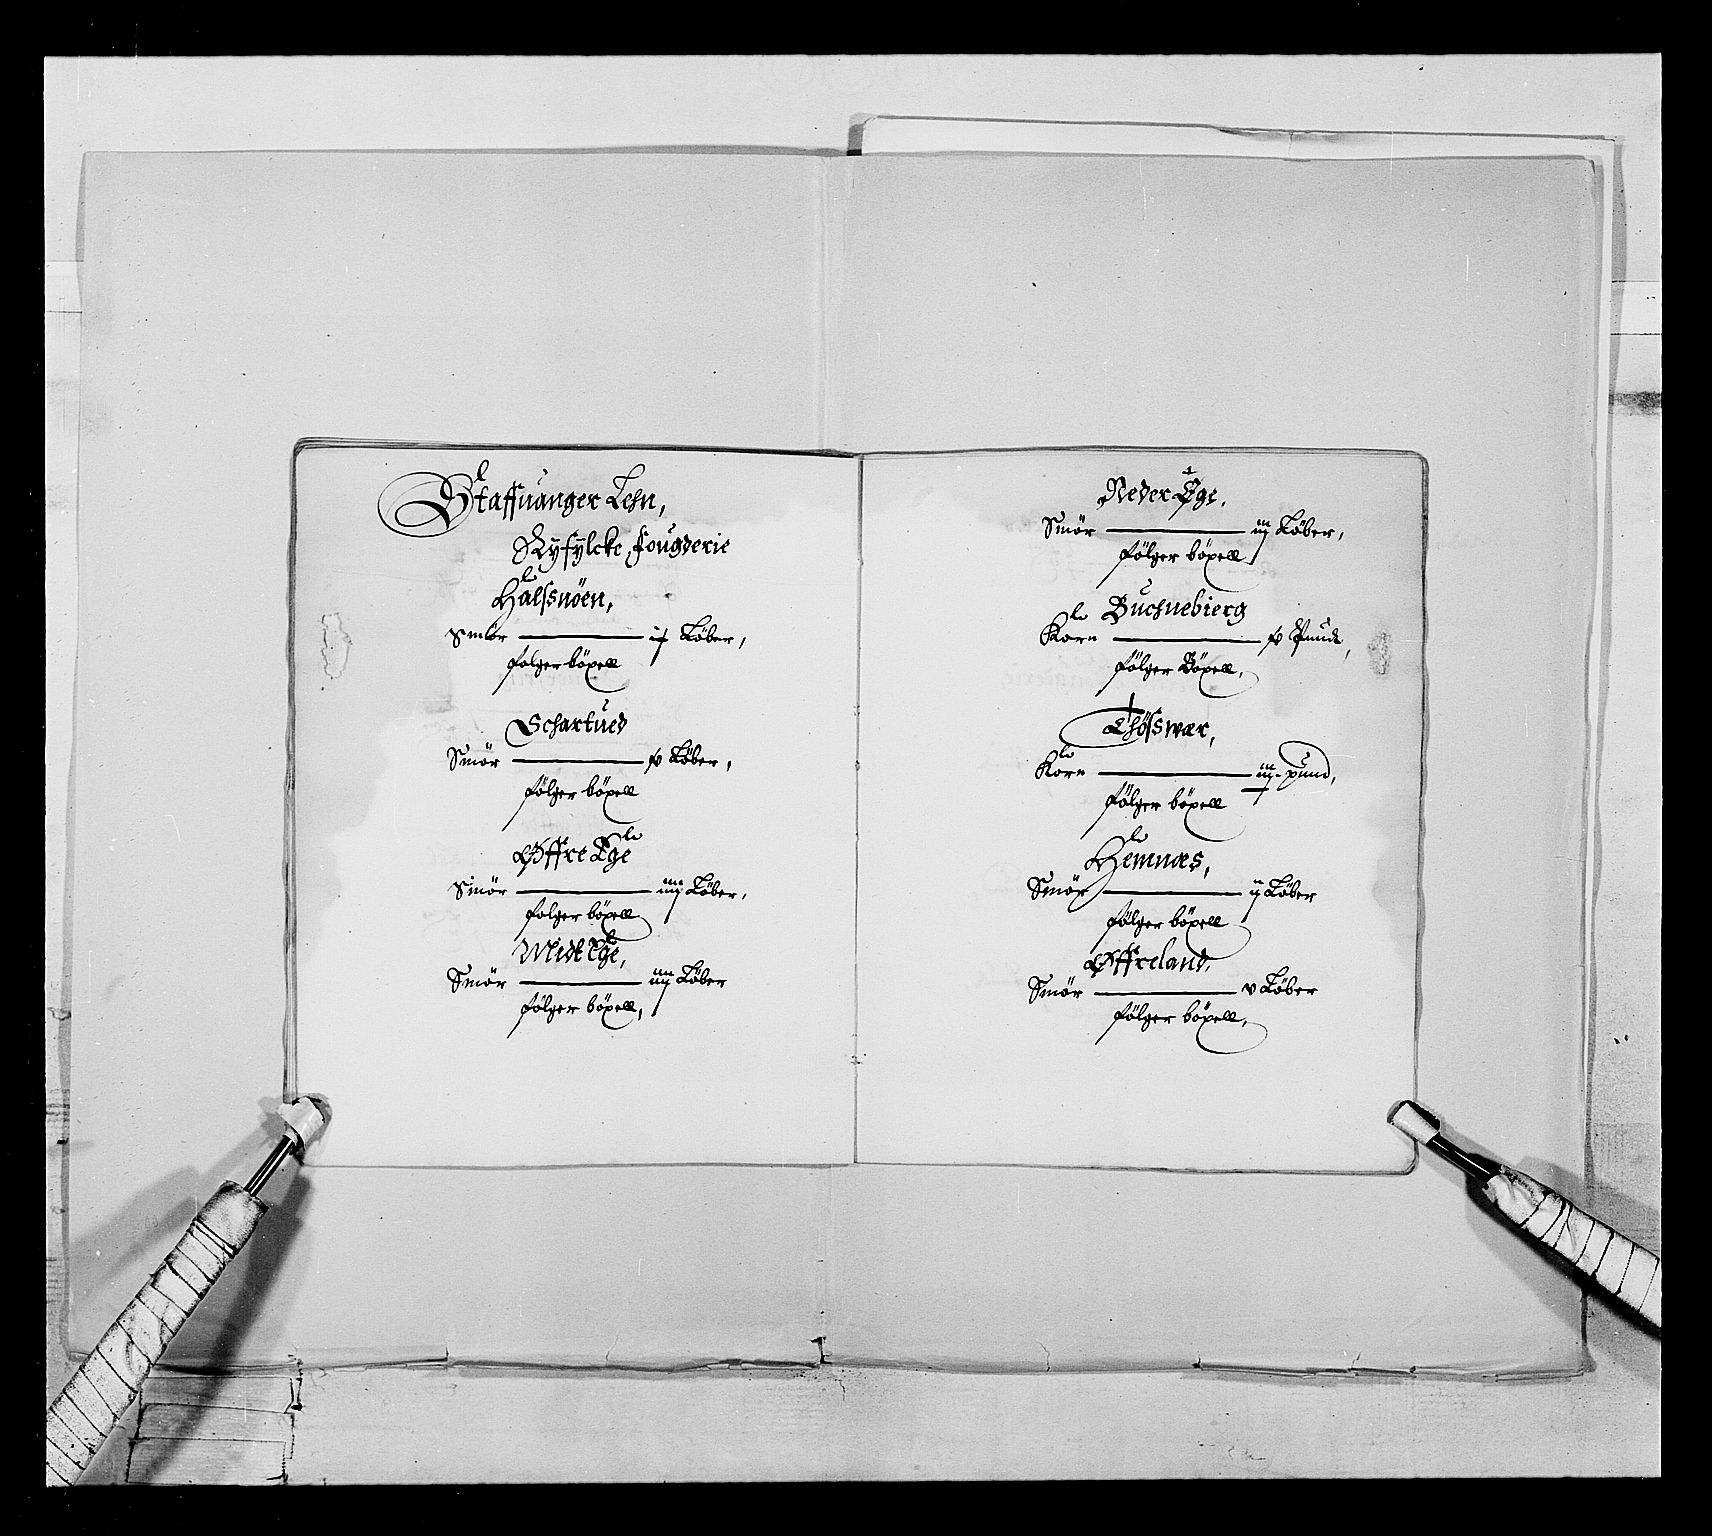 Staffuanger Lehn,
Ryfylcke, fougderie
Halssnöen,
Smör — Løber,
følger böxell
Schartued
Smör — Løber,
følger böxell
Øffre Ege
Smör — iiij Løber,
følger böxell
Midt Ege,
Smör — iiij Løber
følger böxell,
Neder Ege,
Smör — iij Løber,
følger böxell
Buchnebierg
Korn — Pund,
følger Böxell,
Korn — pund,
følger böxell
Hemnæs,
Smör — ij Løber
følger böxell
Øffreland,
Smör — v Løber
følger böxell,